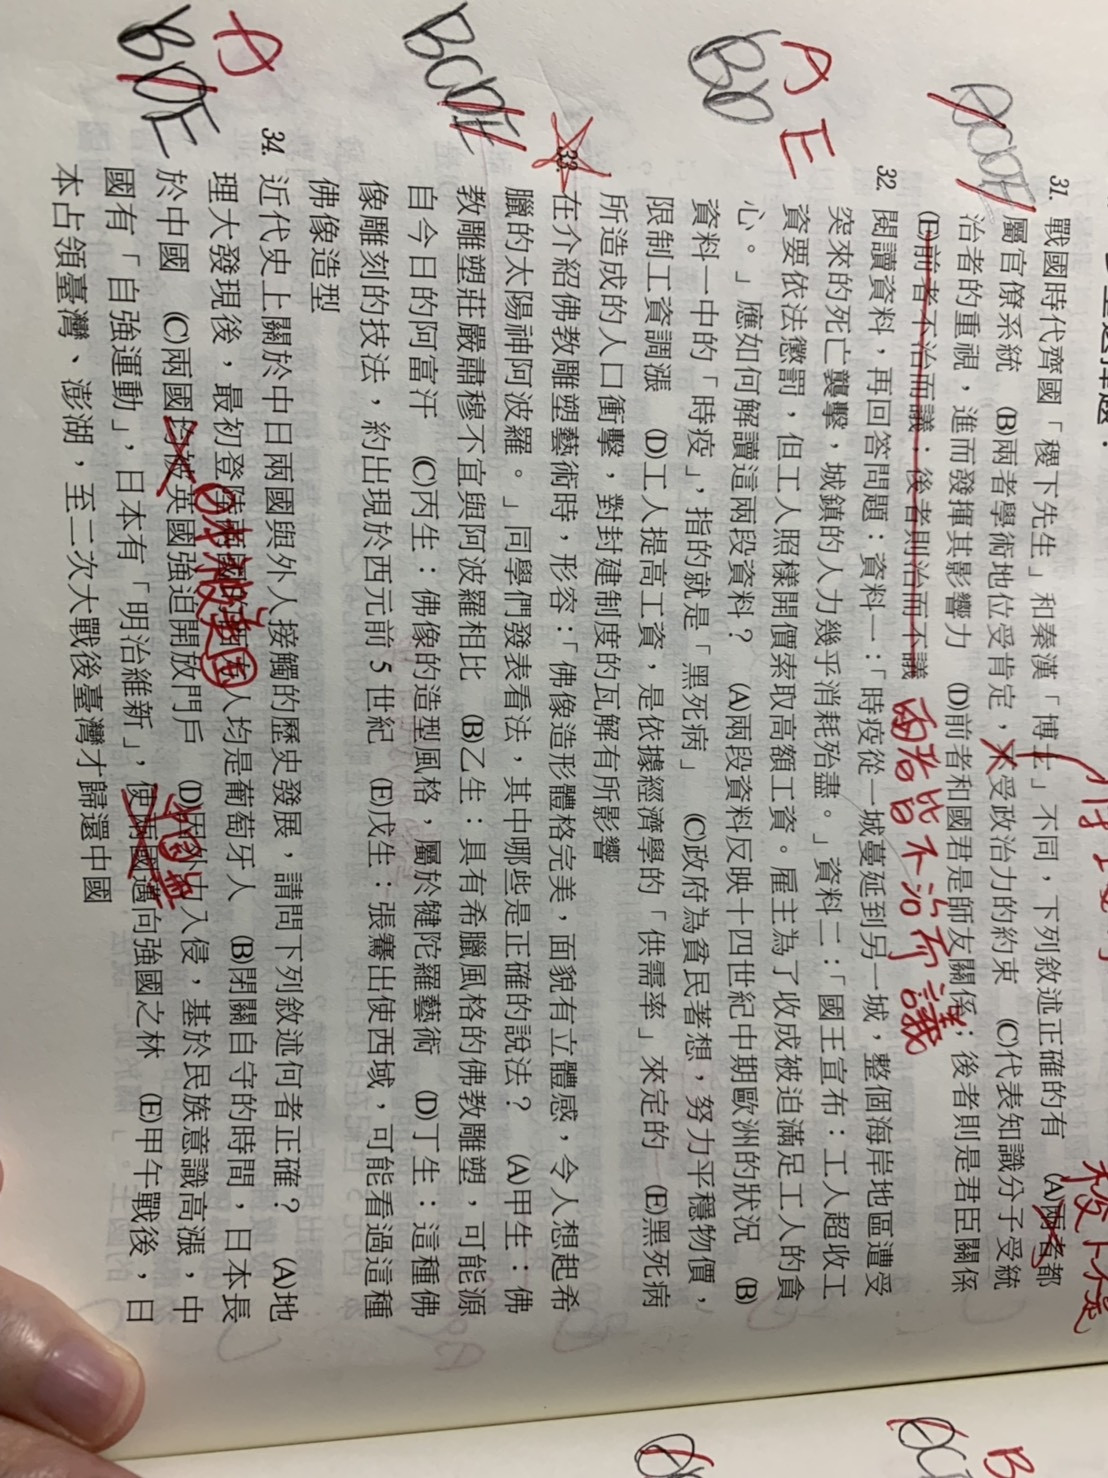 31. 戰國時代齊國「稷下先生」和秦漢「博士」不同，下列敘述正確的有 (A)兩者都
屬官僚系統 (B)兩者學術地位受肯定，不受政治力的約束 (C)代表知識分子受統
治者的重視，進而發揮其影響力 (D)前者和國君是師友關係；後者則是君臣關係
(E)前者不治而議；後者則治而不議
兩者皆不治而議
32. 閱讀資料，再回答問題：資料一：「時疫從一城蔓延到另一城，整個海岸地區遭受
突來的死亡襲擊，城鎮的人力幾乎消耗殆盡。」資料二：「國王宣布：工人超收工
資要依法懲罰，但工人照樣開價索取高額工資。雇主為了收成被迫滿足工人的貪
心。」應如何解讀這兩段資料？ (A)兩段資料反映十四世紀中期歐洲的狀況 (B)
資料一中的「時疫」，指的就是「黑死病」 (C)政府為貧民著想，努力平穩物價，
限制工資調漲 (D)工人提高工資，是依據經濟學的「供需率」來定的 (E)黑死病
所造成的人口衝擊，對封建制度的瓦解有所影響
A E
BD
33. 在介紹佛教雕塑藝術時，形容：「佛像造形體格完美，面貌有立體感，令人想起希
臘的太陽神阿波羅。」同學們發表看法，其中哪些是正確的說法？ (A)甲生：佛
教雕塑莊嚴肅穆不宜與阿波羅相比 (B)乙生：具有希臘風格的佛教雕塑，可能源
自今日的阿富汗 (C)丙生：佛像的造型風格，屬於犍陀羅藝術 (D)丁生：這種佛
像雕刻的技法，約出現於西元前 5 世紀 (E)戊生：張騫出使西域，可能看過這種
佛像造型
34. 近代史上關於中日兩國與外人接觸的歷史發展，請問下列敘述何者正確？ (A)地
理大發現後，最初登陸兩國的西方人均是葡萄牙人 (B)閉關自守的時間，日本長
於中國 (C)兩國均被英國強迫開放門戶 (D)因外力入侵，基於民族意識高漲，中
國有「自強運動」，日本有「明治維新」，使兩國邁向強國之林 (E)甲午戰後，日
本占領臺灣、澎湖，至二次大戰後臺灣才歸還中國
A
BDE